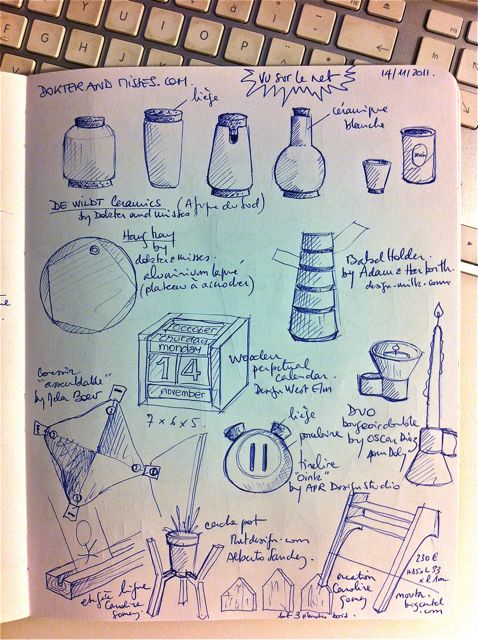 DOKTER AND MISSES.COM.
VU SUR LE NET
14/11/2011.
liège
céramique
blanche
DE WILDT Ceramics (Afrique du Sud)
by Dokter and misses
by
dokter & misses.
aluminium laqué
(plateau à accrocher)
Holder.
by Adam & Harborth.
design-milk.com
october
thursday
monday
14
november
Wooden
perpetual
calendar.
Design West Elm
7 x 6 x 5.
Coussin
by
liège
porcelaine
tirelire
"oink"
by APR Design Studio
DUO
bougeoir double
by OSCAR Diaz
cache pot
design.com
Alberto Sanchez.
OK
étagère ligne
Caroline
Gomez
lot 3 planches bois.
création
Caroline
Gomez
230 €